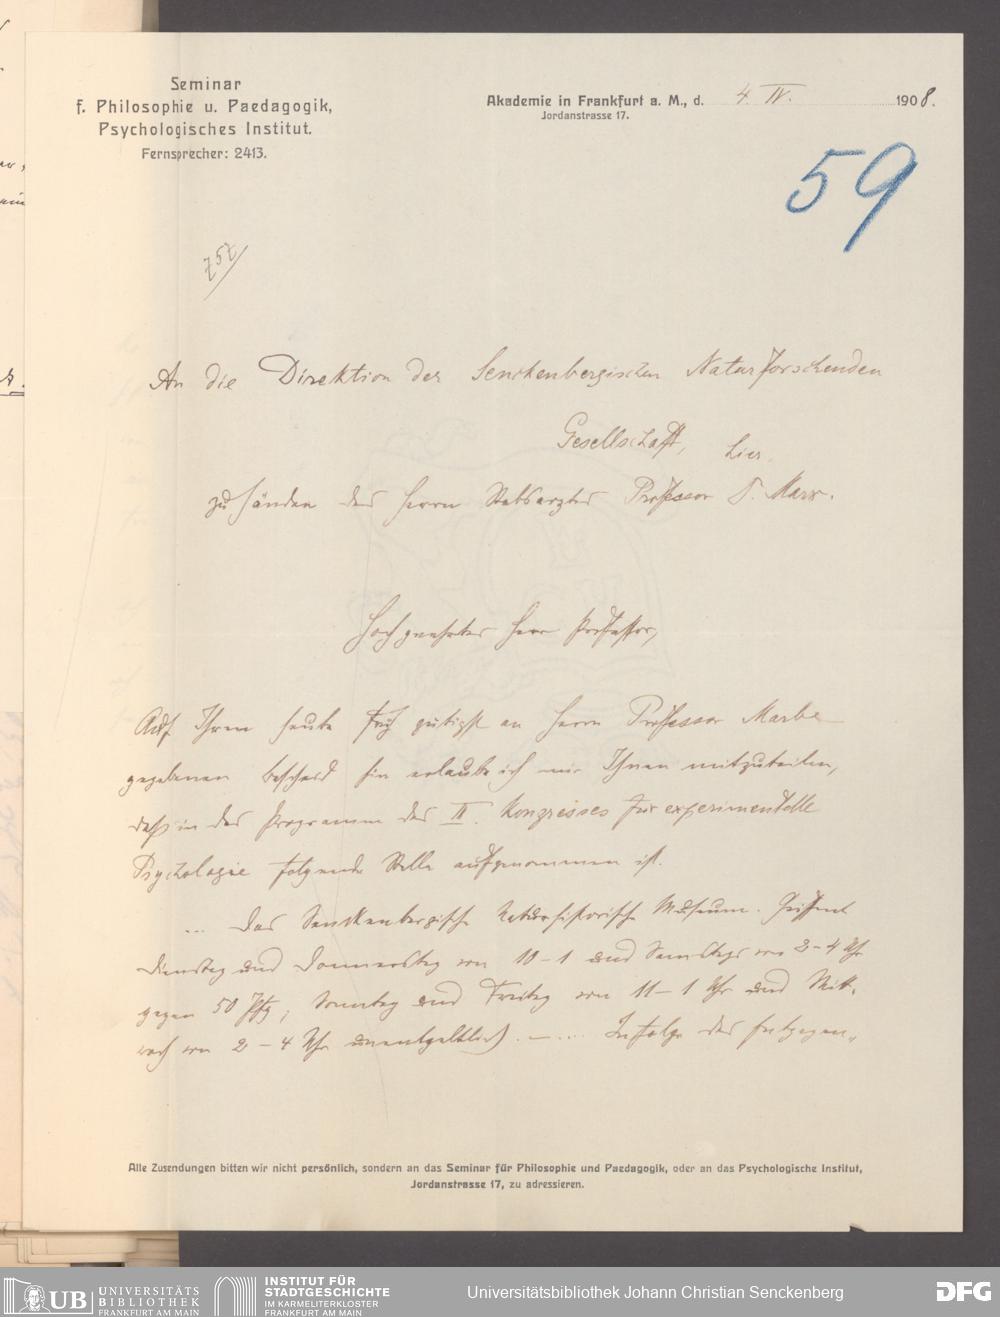 Seminar
f. Philosophie u. Paedagogik,
Psychologisches Institut.
Fernsprecher: 2413.
Akademie in Frankfurt a. M., d. 4. IV. 1908.
Jordanstrasse 17.
59
757
An die Direktion der Senckenbergischen Naturforschenden
Gesellschaft, hier
zu Händen des Herrn Stabsarztes Professor D. Marx.
Hochgeehrter Herr Professor,
Auf Ihren heute früh gütigst an Herrn Professor Marbe
gegebenen Bescheid hin erlaube ich mir Ihnen mitzuteilen,
daß in das Programm des III. Kongresses für experimentelle
Psychologie folgende Stelle aufgenommen ist.
... Das Senckenbergische Naturhistorische Museum. Geöffnet
Dienstag und Donnerstag von 10-1 und Samstags von 2-4 Uhr
gegen 50 Pfg; Sonntag und Freitag von 11-1 Uhr und Mitt-
woch von 2-4 Uhr unentgeltlich. — .... Infolge des Entgegen-
Alle Zusendungen bitten wir nicht persönlich, sondern an das Seminar für Philosophie und Paedagogik, oder an das Psychologische Institut,
Jordanstrasse 17, zu adressieren.
UB UNIVERSITÄTS
BIBLIOTHEK
FRANKFURT AM MAIN
INSTITUT FÜR
STADTGESCHICHTE
IM KARMELITERKLOSTER
FRANKFURT AM MAIN
Universitätsbibliothek Johann Christian Senckenberg
DFG